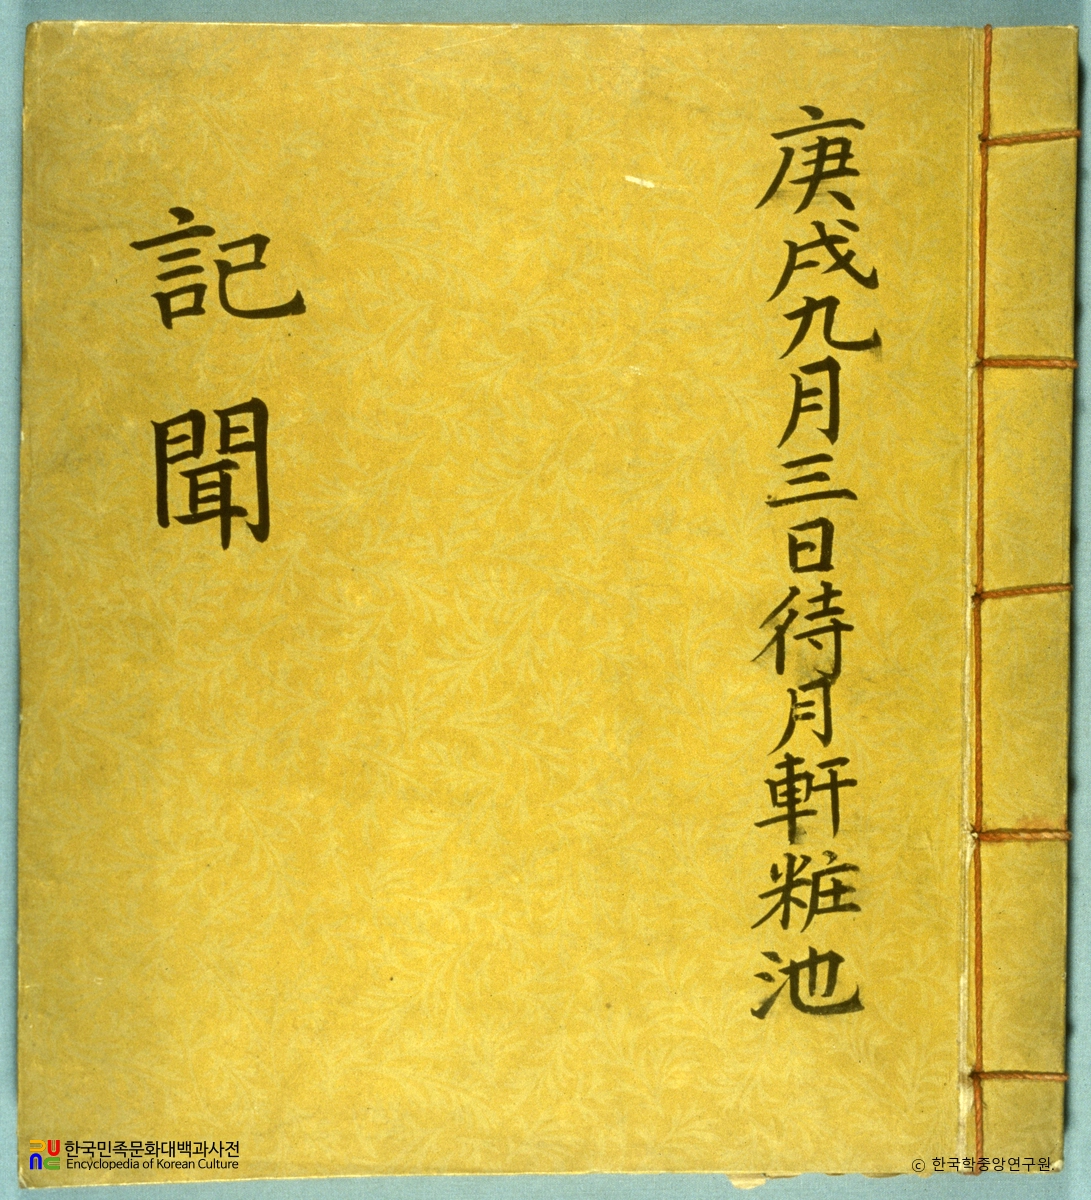 庚戌九月三日待月軒粧池
記聞
한국민족문화대백과사전
Encyclopedia of Korean Culture
ⓒ 한국학중앙연구원.